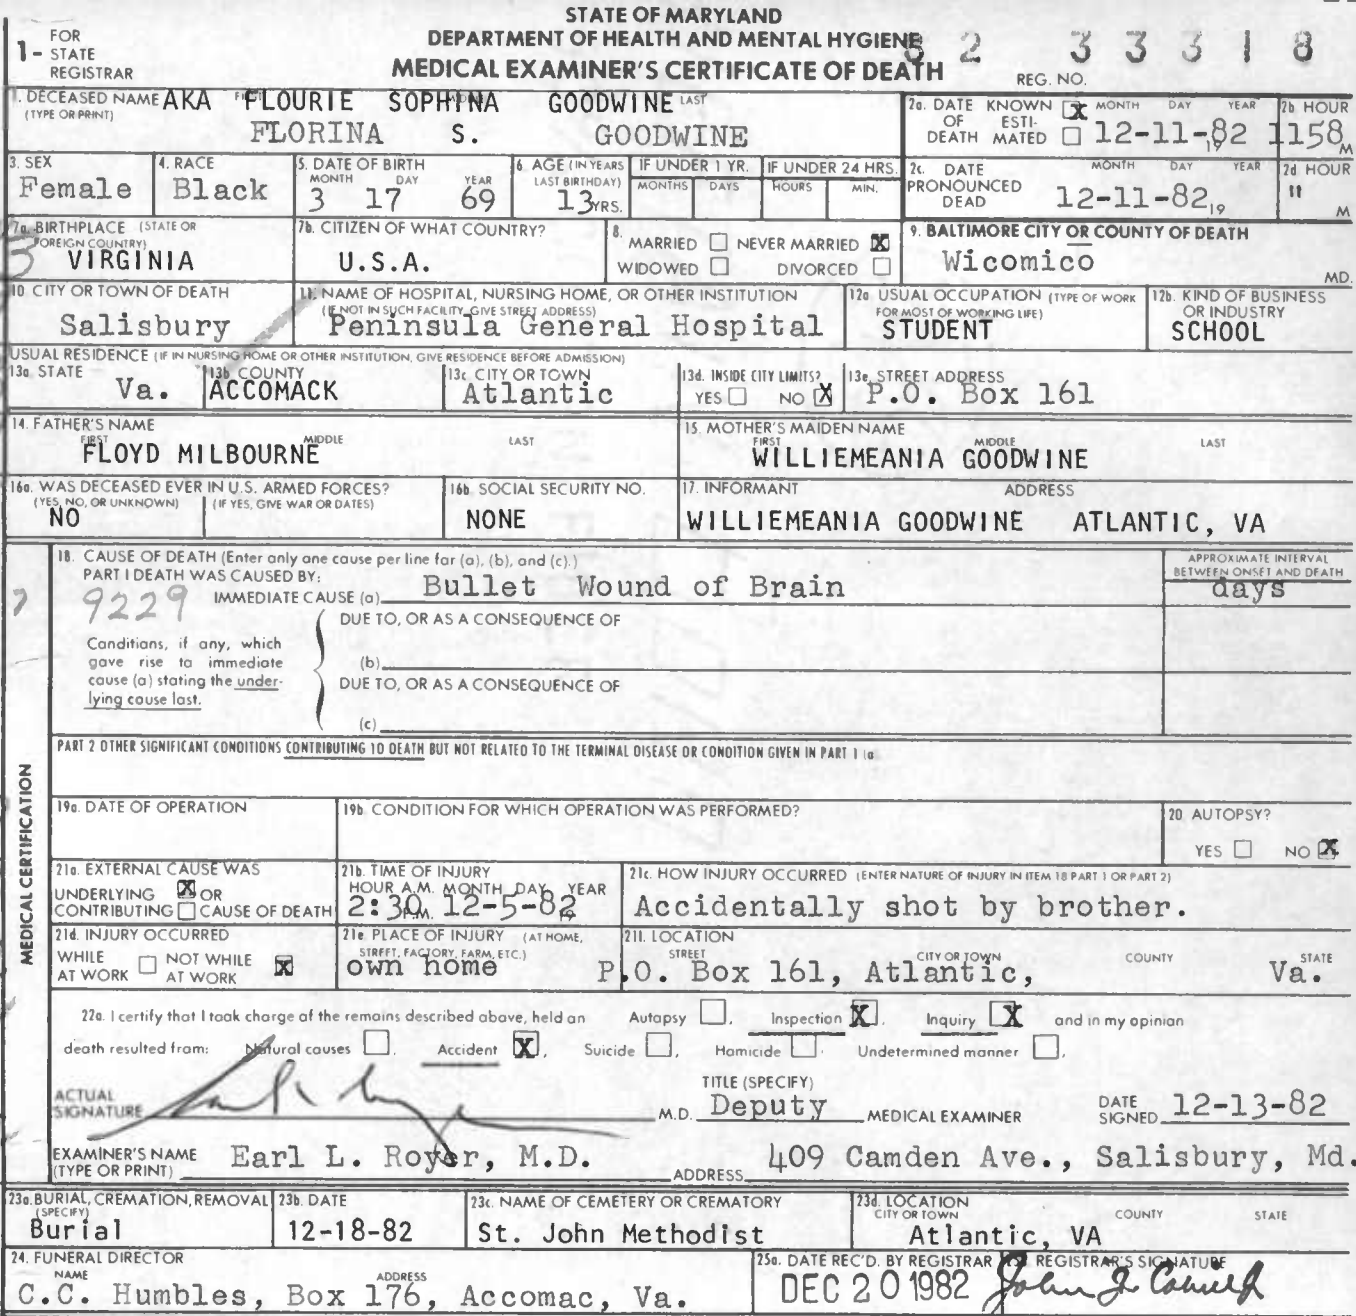 STATE OF MARYLAND
DEPARTMENT OF HEALTH AND MENTAL HYGIENE
MEDICAL EXAMINER'S CERTIFICATE OF DEATH
1- FOR STATE REGISTRAR
REG. NO. 82 33318
1. DECEASED NAME (TYPE OR PRINT) AKA FLOURIE SOPHINA GOODWINE LAST
FLORINA S. GOODWINE
2a. DATE OF DEATH KNOWN X ESTIMATED MONTH DAY YEAR 12-11-82 19
2b HOUR 1158 M
3. SEX Female
4. RACE Black
5. DATE OF BIRTH MONTH DAY YEAR 3 17 69
6. AGE (IN YEARS LAST BIRTHDAY) 13 YRS.
IF UNDER 1 YR. MONTHS DAYS
IF UNDER 24 HRS. HOURS MIN.
2c. DATE PRONOUNCED DEAD MONTH DAY YEAR 12-11-82, 19
2d HOUR " M
7a. BIRTHPLACE (STATE OR FOREIGN COUNTRY) VIRGINIA
7b. CITIZEN OF WHAT COUNTRY? U.S.A.
8. MARRIED NEVER MARRIED X
WIDOWED DIVORCED
9. BALTIMORE CITY OR COUNTY OF DEATH Wicomico MD.
10. CITY OR TOWN OF DEATH Salisbury
11. NAME OF HOSPITAL, NURSING HOME, OR OTHER INSTITUTION (IF NOT IN SUCH FACILITY, GIVE STREET ADDRESS) Peninsula General Hospital
12a. USUAL OCCUPATION (TYPE OF WORK FOR MOST OF WORKING LIFE) STUDENT
12b. KIND OF BUSINESS OR INDUSTRY SCHOOL
USUAL RESIDENCE (IF IN NURSING HOME OR OTHER INSTITUTION, GIVE RESIDENCE BEFORE ADMISSION)
13a. STATE Va.
13b. COUNTY ACCOMACK
13c. CITY OR TOWN Atlantic
13d. INSIDE CITY LIMITS? YES NO X
13e. STREET ADDRESS P.O. Box 161
14. FATHER'S NAME FIRST MIDDLE LAST
FLOYD MILBOURNE
15. MOTHER'S MAIDEN NAME FIRST MIDDLE LAST
WILLIEMEANIA GOODWINE
16a. WAS DECEASED EVER IN U.S. ARMED FORCES? (YES, NO, OR UNKNOWN) (IF YES, GIVE WAR OR DATES) NO
16b. SOCIAL SECURITY NO. NONE
17. INFORMANT ADDRESS
WILLIEMEANIA GOODWINE ATLANTIC, VA
MEDICAL CERTIFICATION
18. CAUSE OF DEATH (Enter only one cause per line for (a), (b), and (c).)
APPROXIMATE INTERVAL BETWEEN ONSET AND DEATH
PART I DEATH WAS CAUSED BY:
9229 IMMEDIATE CAUSE (a) Bullet Wound of Brain days
DUE TO, OR AS A CONSEQUENCE OF
Conditions, if any, which gave rise to immediate cause (a) stating the underlying cause last.
(b)
DUE TO, OR AS A CONSEQUENCE OF
(c)
PART 2 OTHER SIGNIFICANT CONDITIONS CONTRIBUTING TO DEATH BUT NOT RELATED TO THE TERMINAL DISEASE OR CONDITION GIVEN IN PART 1 (a
19a. DATE OF OPERATION
19b. CONDITION FOR WHICH OPERATION WAS PERFORMED?
20. AUTOPSY?
YES NO X
21a. EXTERNAL CAUSE WAS
UNDERLYING X OR
CONTRIBUTING CAUSE OF DEATH
21b. TIME OF INJURY
HOUR A.M. MONTH DAY YEAR
2:30 P.M. 12-5-82 19
21c. HOW INJURY OCCURRED (ENTER NATURE OF INJURY IN ITEM 18 PART 1 OR PART 2)
Accidentally shot by brother.
21d. INJURY OCCURRED
WHILE AT WORK NOT WHILE AT WORK X
21e. PLACE OF INJURY (AT HOME, STREET, FACTORY, FARM, ETC.)
own home
21f. LOCATION
STREET CITY OR TOWN COUNTY STATE
P.O. Box 161, Atlantic, Va.
22a. I certify that I took charge of the remains described above, held an Autopsy , Inspection X , Inquiry X and in my opinion
death resulted from: Natural causes , Accident X , Suicide , Homicide , Undetermined manner ,
ACTUAL SIGNATURE M.D.
TITLE (SPECIFY) Deputy MEDICAL EXAMINER
DATE SIGNED 12-13-82
EXAMINER'S NAME (TYPE OR PRINT) Earl L. Royer, M.D. ADDRESS 409 Camden Ave., Salisbury, Md.
23a. BURIAL, CREMATION, REMOVAL (SPECIFY) Burial
23b. DATE 12-18-82
23c. NAME OF CEMETERY OR CREMATORY St. John Methodist
23d. LOCATION CITY OR TOWN COUNTY STATE
Atlantic, VA
24. FUNERAL DIRECTOR
NAME ADDRESS
C.C. Humbles, Box 176, Accomac, Va.
25a. DATE REC'D. BY REGISTRAR DEC 20 1982
REGISTRAR'S SIGNATURE